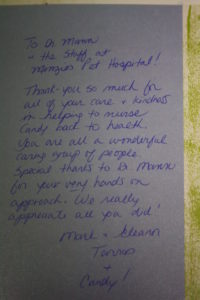 To Dr. Mann
+ the staff at
Menzies Pet Hospital!
Thank-you so much for
all of your care + kindness
in helping to nurse
Candy back to health.
You are all a wonderful
caring group of people.
Special thanks to Dr. Mann
for your very hands on
approach. We really
appreciate all you did!
Mark + Eleanor
+
Candy!